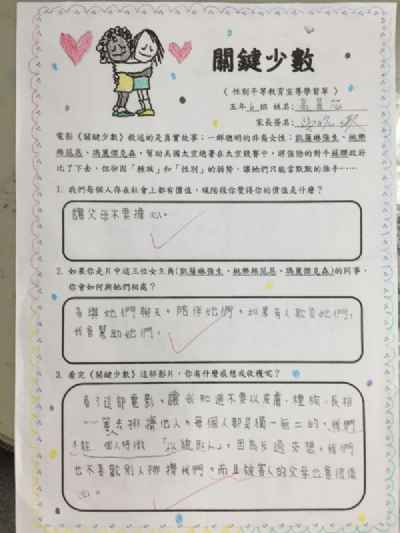 關鍵少數
( 性別平等教育宣導學習單 )
五年 班 姓名:
家長簽名:
電影《關鍵少數》敘述的是真實故事:一群聰明的非裔女性:凱薩琳強生、桃樂
絲范恩、瑪麗傑克森,幫助美國太空總署在太空競賽中,將強勁的對手蘇聯政府
比了下去,但卻因「種族」和「性別」的弱勢,讓她們只能當默默的推手……
1. 我們每個人存在社會上都有價值,現階段你覺得你的價值是什麼?
讓父母不要擔心。
2. 如果你是片中這三位女主角(凱薩琳強生、桃樂絲范恩、瑪麗傑克森)的同事,
你會如何與她們相處?
多與她們聊天,陪伴她們,如果有人欺負她們,
我會幫助她們。
3. 看完《關鍵少數》這部影片,你有什麼感想或收穫呢?
看了這部電影,讓我知道不要以皮膚、種族、長相
…等去排擠他人,每個人都是獨一無二的,我們
不能 個人特徵 「以 」,因為反過來想,我們
也不喜歡別人排擠我們,而且被害人的父母也會很傷
心。